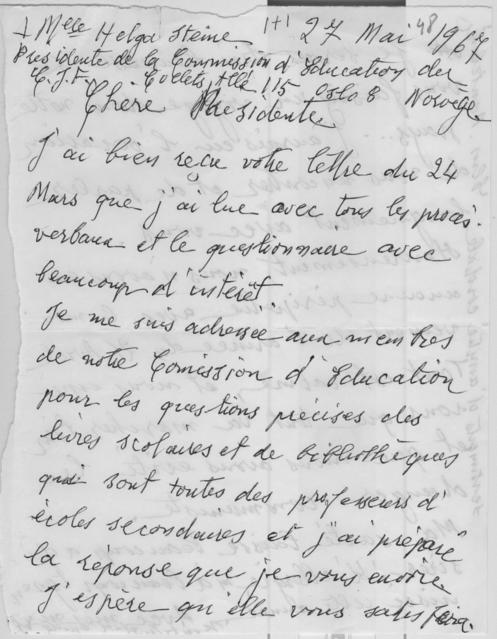 + Melle Helga Steine 1+1 27 Mai '48 1967
Présidente de la Commission d'Education de
C.J.F. Allé 115 Oslo 8 Norvège
Chère Présidente
J'ai bien reçu votre lettre du 24
Mars que j'ai lue avec tous les procès.
verbaux et le questionnaire avec
beaucoup d'intérêt.
Je me suis adressée aux membres
de notre Comission d'Education
pour les questions précises des
livres scolaires et de bibliothèques
qui sont toutes des professeurs d'
écoles secondaires et j'ai préparé
la réponse que je vous envoie
J'espère qu'elle vous satisfera.